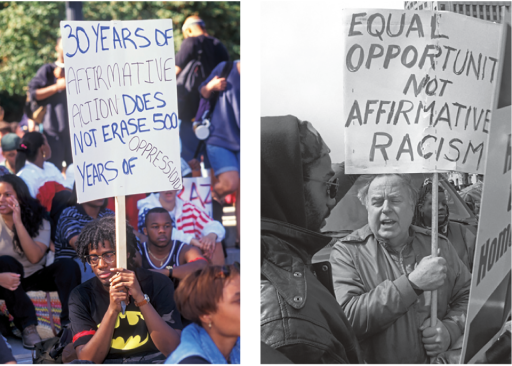 30 YEARS OF
AFFIRMATIVE
ACTION DOES
NOT ERASE 500
YEARS OF OPPRESSION
EQUAL
OPPORTUNIT
NOT
AFFIRMATIVE
RACISM